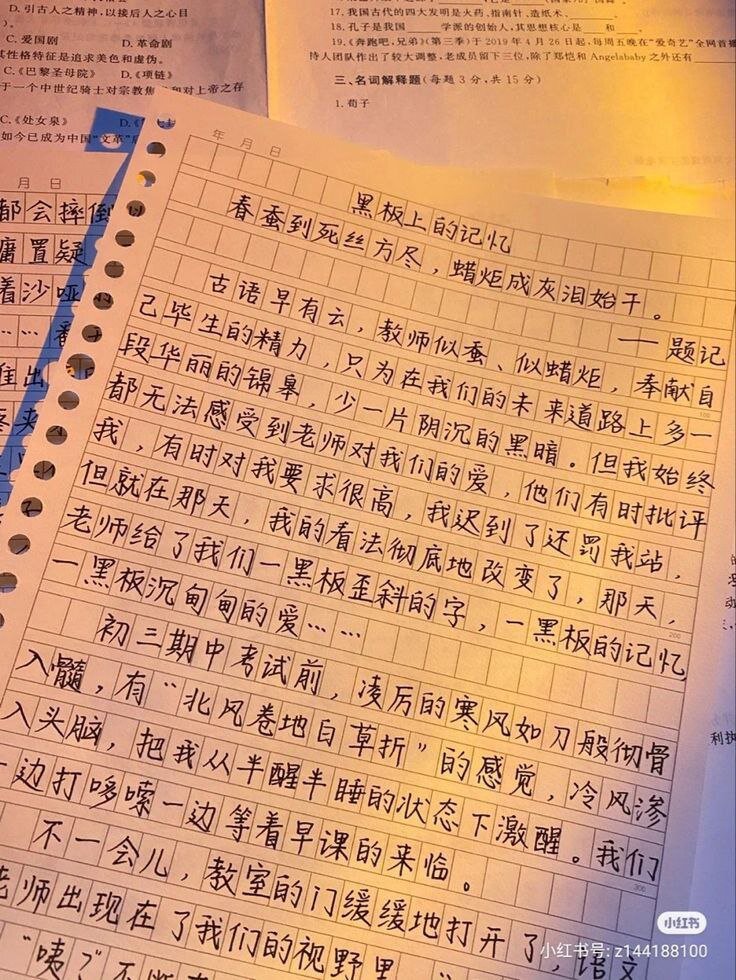 D.引古人之精神,以接后人之心目
C.爱国剧 D.革命剧
其性格特征是追求美色和虚伪。
C.《巴黎圣母院》 D.《项链》
于一个中世纪骑士对宗教焦 和对上帝之存
C.《处女泉》
如今已成为中国“文革”后
17.我国古代的四大发明是火药、指南针、造纸术、
18.孔子是我国 学派的创始人,其思想核心是 和 。
19.《奔跑吧,兄弟》(第三季)于 2019 年 4 月 26 日起,每周五晚在“爱奇艺”全网首播
持人团队作出了较大调整,老成员留下三位,除了郑恺和 Angelababy 之外还有
三、名词解释题(每题 3 分,共 15 分)
1.荀子
月 日
都会摔倒
置疑
着沙哑
年 月 日
黑板上的记忆
春蚕到死丝方尽，蜡炬成灰泪始干。
——题记
古语早有云，教师似蚕、似蜡炬，奉献自
己毕生的精力，只为在我们的未来道路上多一
段华丽的锦皋，少一片阴沉的黑暗。但我始终
100
都无法感受到老师对我们的爱，他们有时批评
我，有时对我要求很高，我迟到了还罚我站，
但就在那天，我的看法彻底地改变了，那天，
老师给了我们一黑板歪斜的字，一黑板的记忆
200
一黑板沉甸甸的爱……
初三期中考试前，凌厉的寒风如刀般彻骨
入髓，有“北风卷地白草折”的感觉，冷风渗
入头脑，把我从半醒半睡的状态下激醒。我们
300
一边打哆嗦一边等着早课的来临。
不一会儿，教室的门缓缓地打开了，语文
老师出现在了我们的视野里
“咦？不断
利执
小红书
小红书号: z144188100